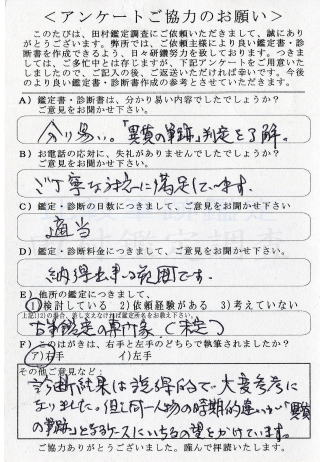 ＜アンケートご協力のお願い＞
このたびは、田村鑑定調査にご依頼いただきまして、誠にあり
がとうございます。弊所では、ご依頼主様により良い鑑定書・診
断書を作成できるよう、日々研鑽努力を致しております。つきま
しては、ご多忙中とは存じますが、下記アンケートをご用意いた
しましたので、ご記入の後、ご返送いただければ幸いです。今後
のより良い鑑定書・診断書作成の参考とさせていただきます。
A）鑑定書・診断書は、分かり易い内容でしたでしょうか？
ご意見をお聞かせ下さい。
分り易い。「異質の筆跡」判定を了解。
B）お電話の応対に、失礼がありませんでしたでしょうか？
ご意見をお聞かせ下さい。
ご丁寧な対応に満足しています。
C）鑑定・診断の日数につきまして、ご意見をお聞かせ下さい
適当
D）鑑定・診断料金につきまして、ご意見をお聞かせ下さい。
納得出来る範囲です。
E）他所の鑑定につきまして、
1)検討している 2)依頼経験がある 3)考えていない
上記1)2)の場合、差し支えなければ鑑定所名をお教え下さい。
古事鑑定の専門家（未定）
F）このはがきは、右手と左手のどちらで執筆されましたか？
ア)右手 イ)左手
その他ご意見など：
診断結果は説得的で大変参考に
なりました。但し同一人物の時期的違いが「異質
の筆跡」となるケースにいちるの望をかけています。
ご協力ありがとうございました。謹んで拝読いたします。